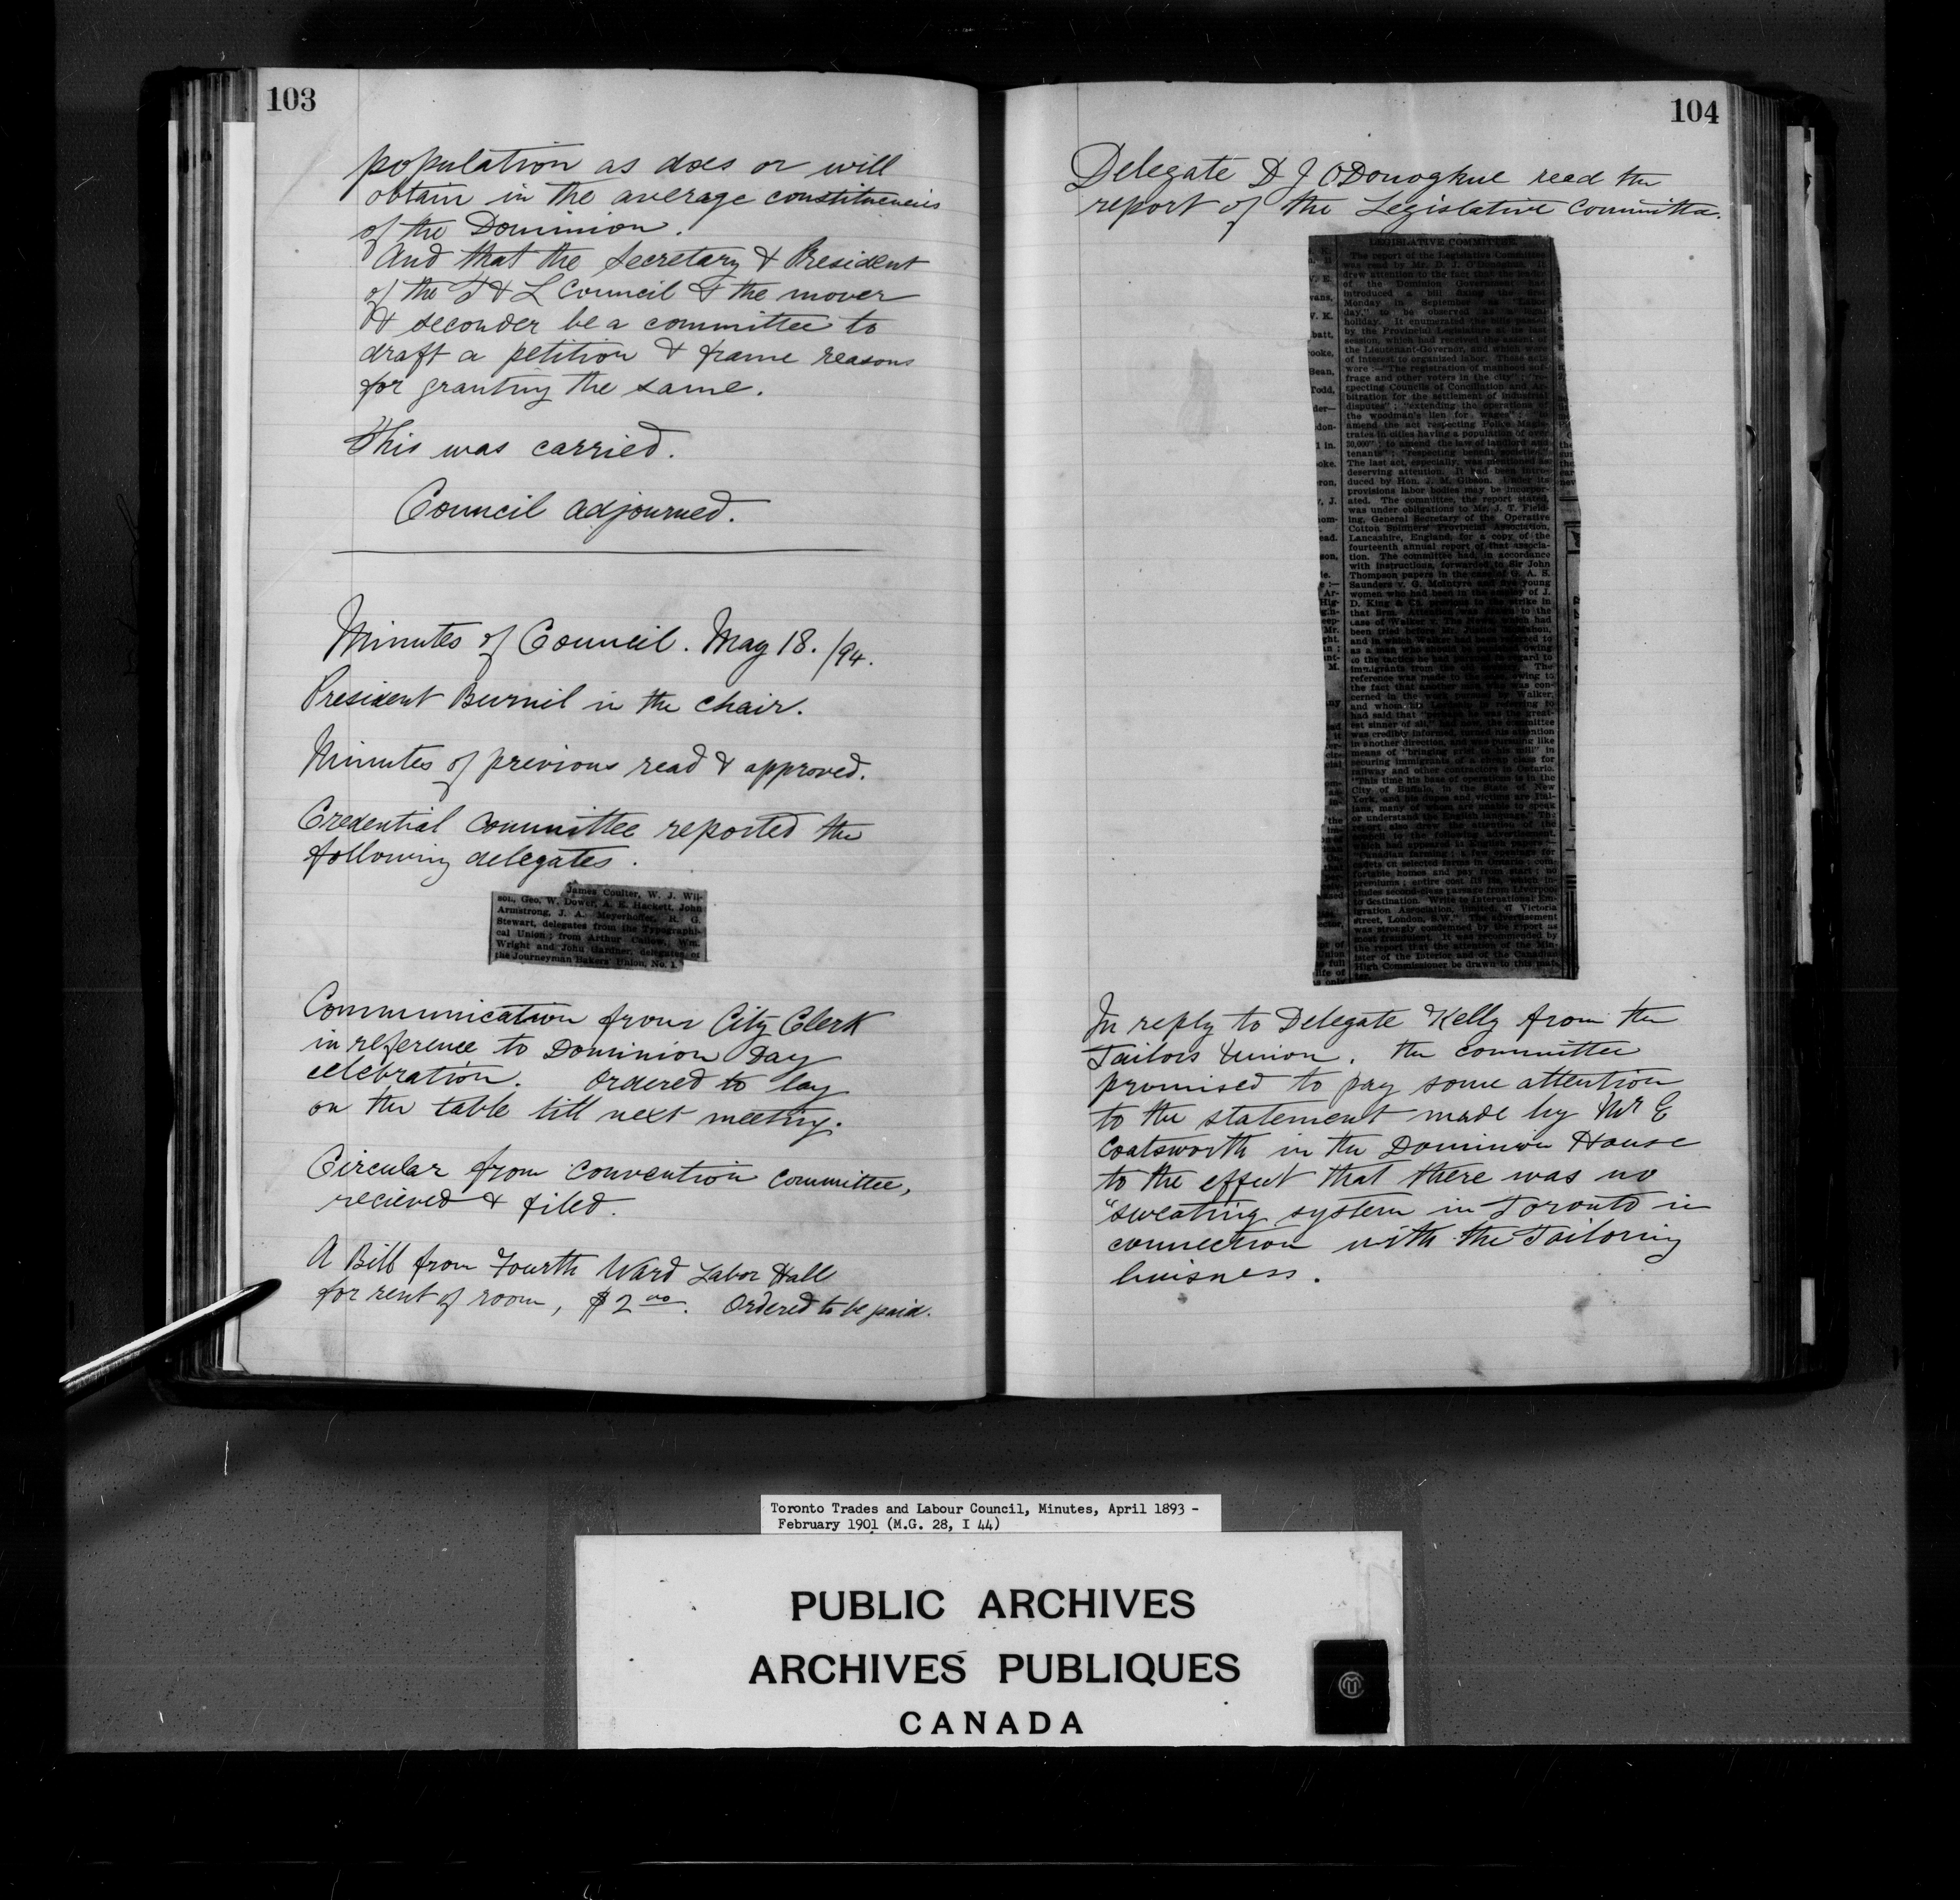 103
population as does or will
obtain in the average constituencies
of the Dominion.
And that the Secretary & President
of the T & L Council & the mover
& seconder be a committee to
draft a petition & frame reasons
for granting the same.
This was carried.
Council adjourned.
Minutes of Council. May 18. /94.
President Burnil in the chair.
Minutes of previous read & approved.
Credential Committee reported the
following delegates.
James Coulter, W. J. Wil-
son, Geo. W. Dower, A. E. Hackett, John
Armstrong, J. A. Meyerhoffer, H. G.
Stewart, delegates from the Typographi-
cal Union; from Arthur Callow, Wm.
Wright and John Gardner, delegates of
the Journeyman Bakers' Union, No. 1.
Communication from City Clerk
in reference to Dominion Day
celebration. Ordered to lay
on the table till next meeting.
Circular from Convention Committee,
recieved & filed.
A Bill from Fourth Ward Labor Hall
for rent of room, $2 00. Ordered to be paid.
104
Delegate D J ODonoghue read the
report of the Legislative Committee.
LEGISLATIVE COMMITTEE.
The report of the Legislative Committee
was read by Mr. D. J. O'Donoghue. It
drew attention to the fact that the leader
of the Dominion Government had
introduced a bill fixing the first
Monday in September as "Labor
day," to be observed as a legal
holiday. It enumerated the bills passed
by the Provincial Legislature at its last
session, which had received the assent of
the Lieutenant-Governor, and which were
of interest to organized labor. These acts
were:—"The registration of manhood suf-
frage and other voters in the city"; "re-
specting Councils of Conciliation and Ar-
bitration for the settlement of industrial
disputes"; "extending the operations of
the woodman's lien for wages"; "to
amend the act respecting Police Magis-
trates in cities having a population of over
30,000"; to amend the law of landlord and
tenants"; "respecting benefit societies."
The last act, especially, was mentioned as
deserving attention. It had been intro-
duced by Hon. J. M. Gibson. Under its
provisions labor bodies may be incorpor-
ated. The committee, the report stated,
was under obligations to Mr. J. T. Field-
ing, General Secretary of the Operative
Cotton Spinners' Provincial Association,
Lancashire, England, for a copy of the
fourteenth annual report of that associa-
tion. The committee had, in accordance
with instructions, forwarded to Sir John
Thompson papers in the case of G. A. S.
Saunders v. G. McIntyre and five young
women who had been in the employ of J.
D. King & Co. previous to the strike in
that firm. Attention was drawn to the
case of Walker v. The News, which had
been tried before Mr. Justice
and in which Walker had
as a man who should be owing
to the tactics he had pursued in regard to
immigrants from the old The
reference was made to the case, owing to
the fact that another man who was con-
cerned in the work pursued by Walker,
and whom his Lordship in referring to
had said that "perhaps he was the great-
est sinner of all," had now, the committee
was credibly informed, turned his attention
in another direction, and was pursuing like
means of "bringing grist to his mill" in
securing immigrants of a cheap class for
railway and other contractors in Ontario.
"This time his base of operations is in the
City of Buffalo, in the State of New
York, and his dupes and victims are Ital-
ians, many of whom are unable to speak
or understand the English language." The
report also drew the attention of the
council to the following advertisement,
which had appeared in English papers:—
"Canadian farming; a few openings for
cadets on selected farms in Ontario; com-
fortable homes and pay from start; no
premiums; entire cost which in-
cludes second-class passage from Liverpool
to destination. Write to International Em-
igration Association, limited, 47 Victoria
street, London, S.W." The advertisement
was strongly condemned by the report as
most fraudulent. It was recommended by
the report that the attention of the Min-
ister of the Interior and of the Canadian
High Commissioner be drawn to this mat-
ter.
In reply to Delegate Kelly from the
Tailors Union. the committee
promised to pay some attention
to the statement made by Mr E
Coatsworth in the Dominion House
to the effect that there was no
"sweating system in Toronto in
connection with the Tailoring
buisness.
Toronto Trades and Labour Council, Minutes, April 1893 -
February 1901 (M.G. 28, I 44)
PUBLIC ARCHIVES
ARCHIVES PUBLIQUES
CANADA